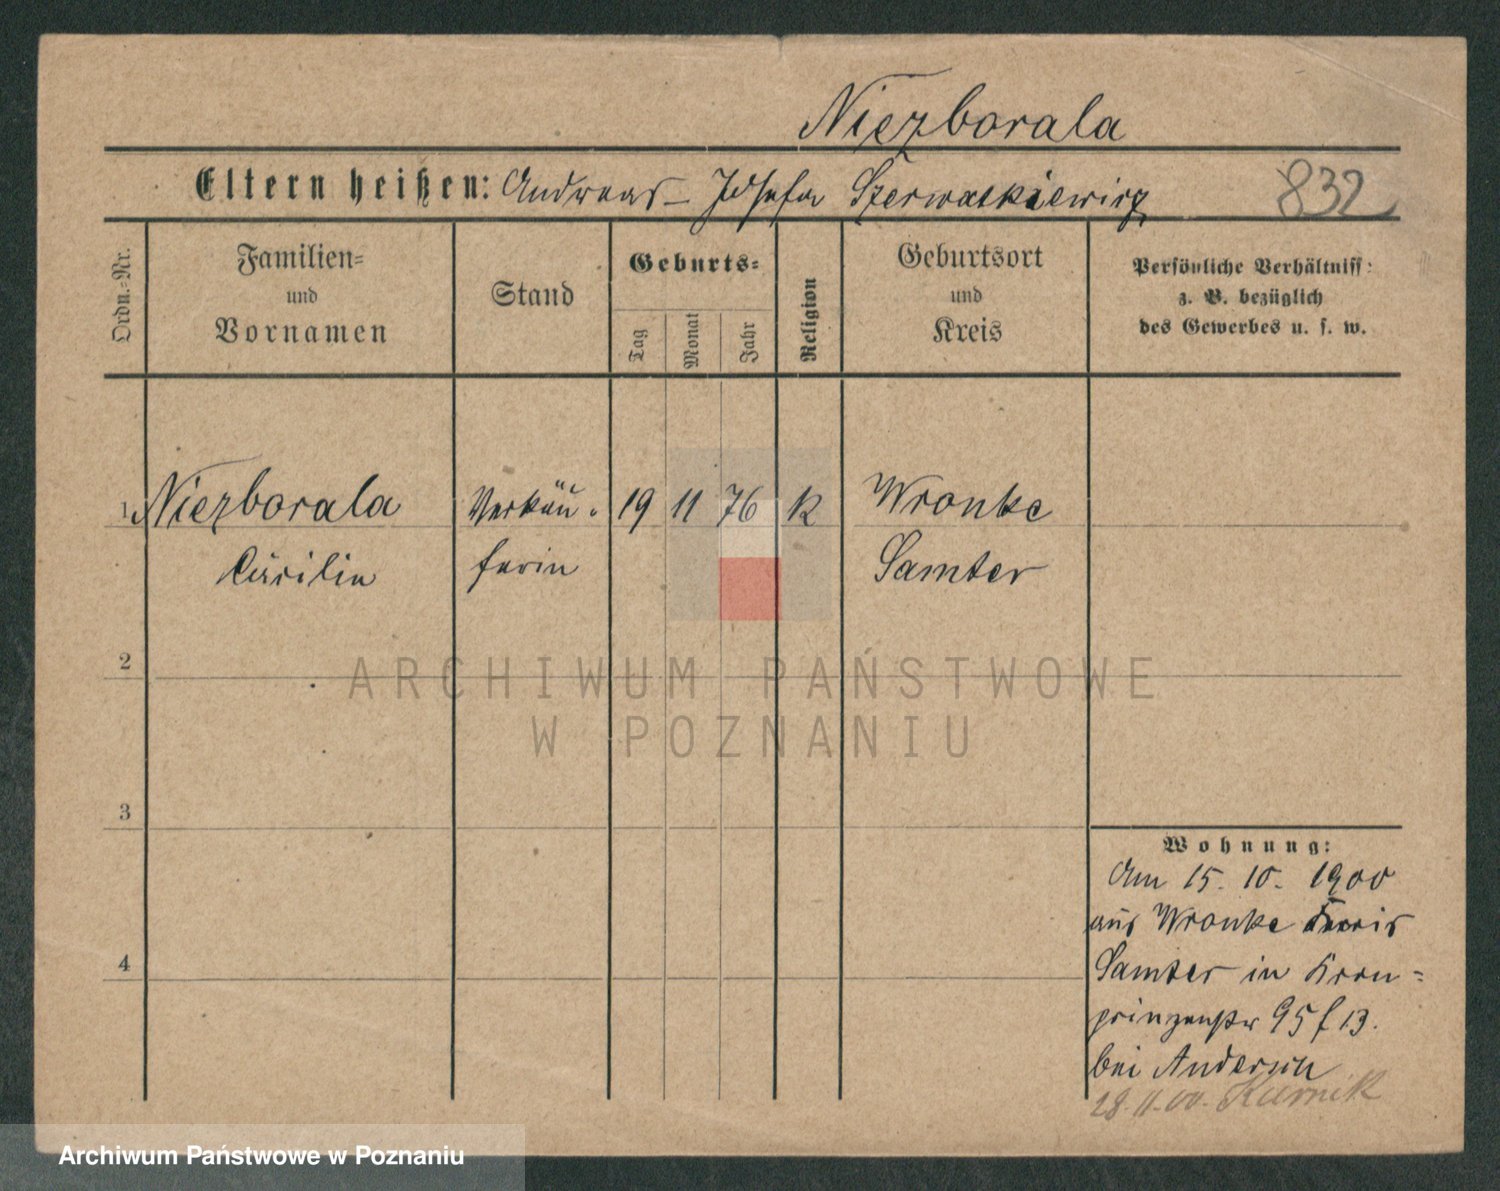 Niezborala
Eltern heißen: Andreas – Josefa 832
Ordn.-Nr.
Familien=
und
Vornamen
Stand
Geburts=
Tag
Monat
Jahr
Religion
Geburtsort
und
Kreis
Persönliche Verhältniss:
z. B. bezüglich
des Gewerbes u. s. w.
1 Niezborala Verkäu- 19 11 76 k Wronke
Cäcilie ferin Samter
2
3
4
Wohnung:
Am 15. 10. 1900
aus Wronke Kreis
Samter in Kron=
prinzenstr 95 f 13.
bei Anderson
28.11.00. Kurnik
ARCHIWUM PAŃSTWOWE
W POZNANIU
Archiwum Państwowe w Poznaniu